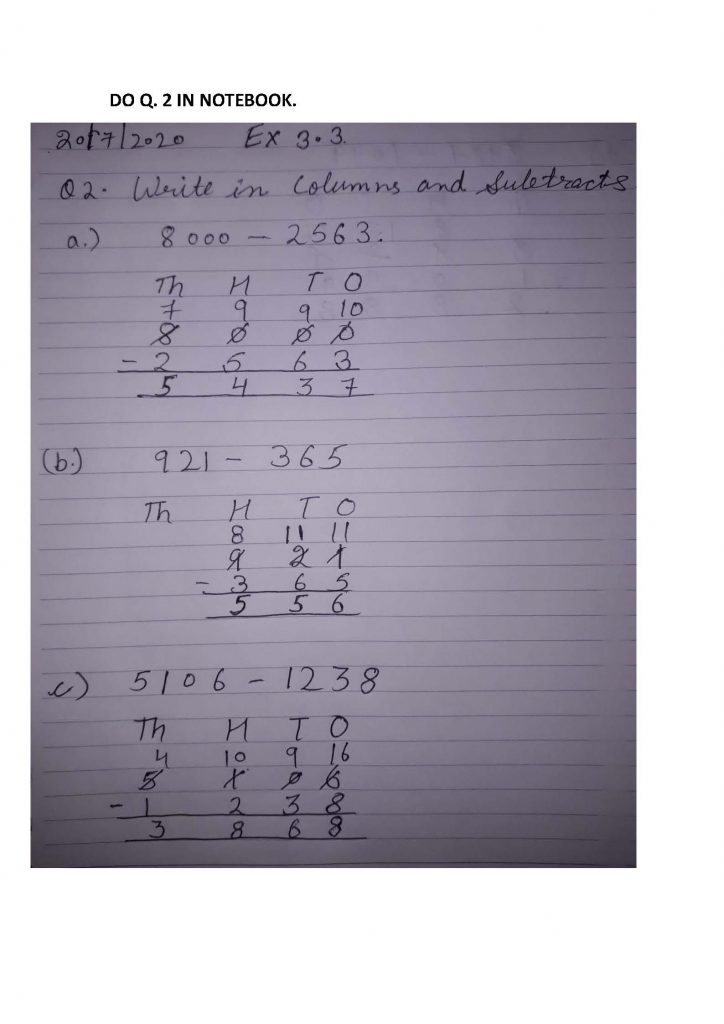 DO Q. 2 IN NOTEBOOK.
20/7/2020 Ex 3.3.
Q2. Write in Columns and Suletracts
a.) 8000 - 2563.
Th H T O
7 9 9 10
8 0 0 0
- 2 5 6 3
5 4 3 7
(b.) 921 - 365
Th H T O
8 11 11
9 2 1
- 3 6 5
5 5 6
c) 5106 - 1238
Th H T O
4 10 9 16
5 1 0 6
- 1 2 3 8
3 8 6 8